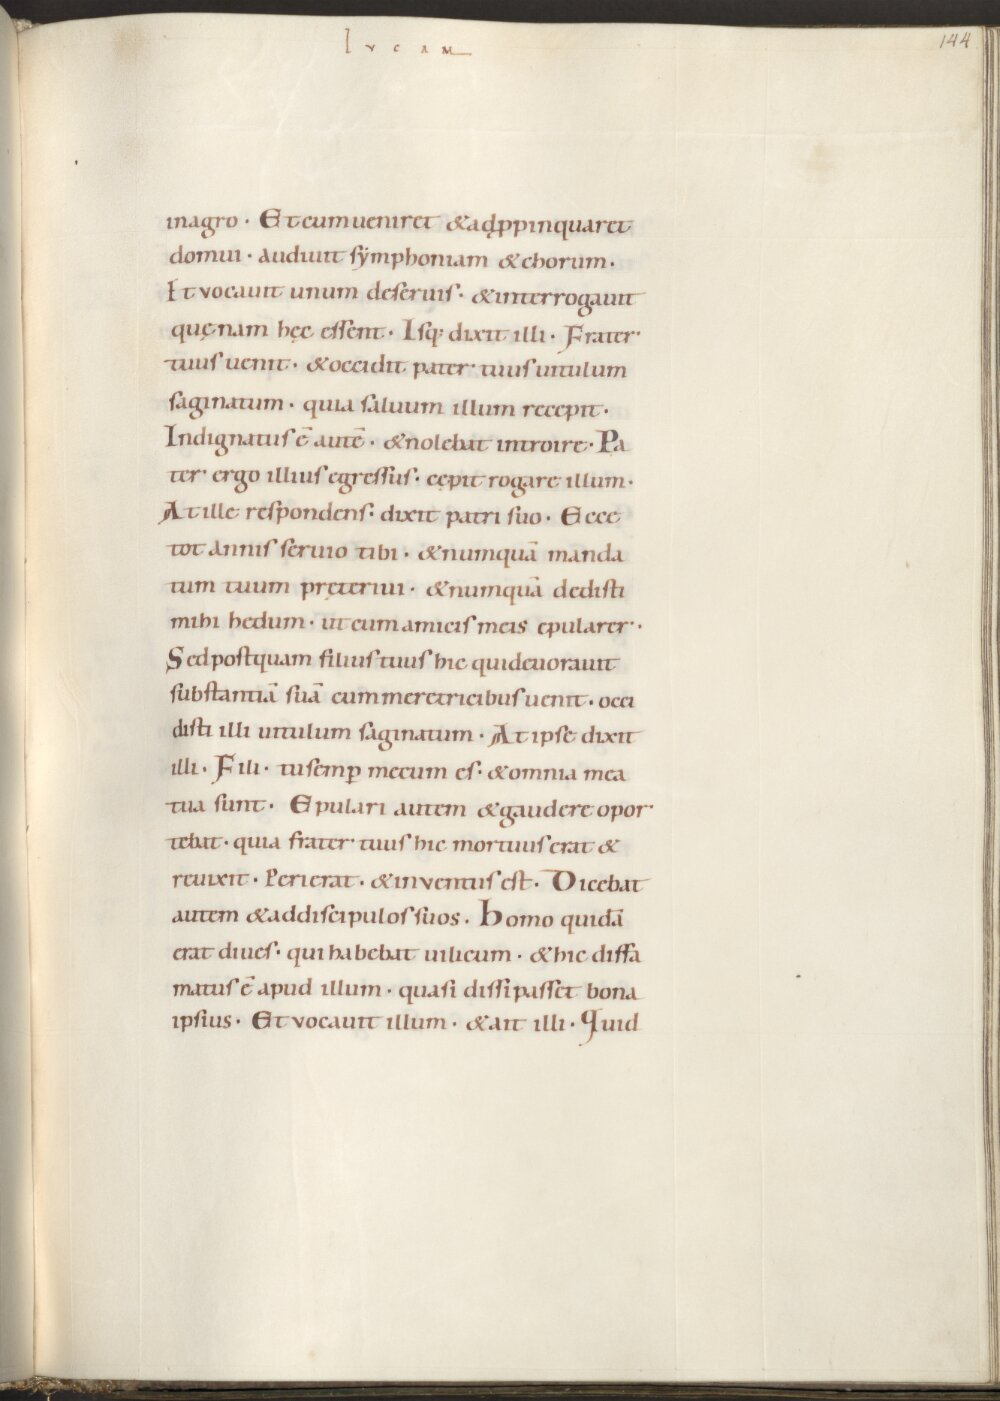 lvcam
144
inagro · Et cum ueniret & adꝓpinquaret
domui · audiuit sẏmphoniam & chorum ·
Et vocauit unum deseruis · & interrogauit
quęnam hęc essent · Isq; dixit illi · Frater
tuus uenit · & occidit pater tuus uitulum
saginatum · quia saluum illum recepit ·
Indignatus ē autē · & nolebat introire · Pa
ter ergo illius egressus · cępit rogare illum ·
At ille respondens · dixit patri suo · Ecce
tot annis seruio tibi · & numquā manda
tum tuum pręteriui · & numquā dedisti
mihi hedum · ut cum amicis meis epularer ·
Sed postquam filius tuus hic quideuorauit
substantiā suā cum meretricibus uenit · occi
disti illi uitulum saginatum · At ipse dixit
illi · Fili · tu semꝑ mecum es · & omnia mea
tua sunt · Epulari autem & gaudere opor
tebat · quia frater tuus hic mortuus erat &
reuixit · Perierat · & inventus est · Dicebat
autem & addiscipulos suos · Homo quidā
erat diues · qui habebat uilicum · & hic diffa
matus ē apud illum · quasi dissipasset bona
ipsius · Et vocauit illum · & ait illi · Quid